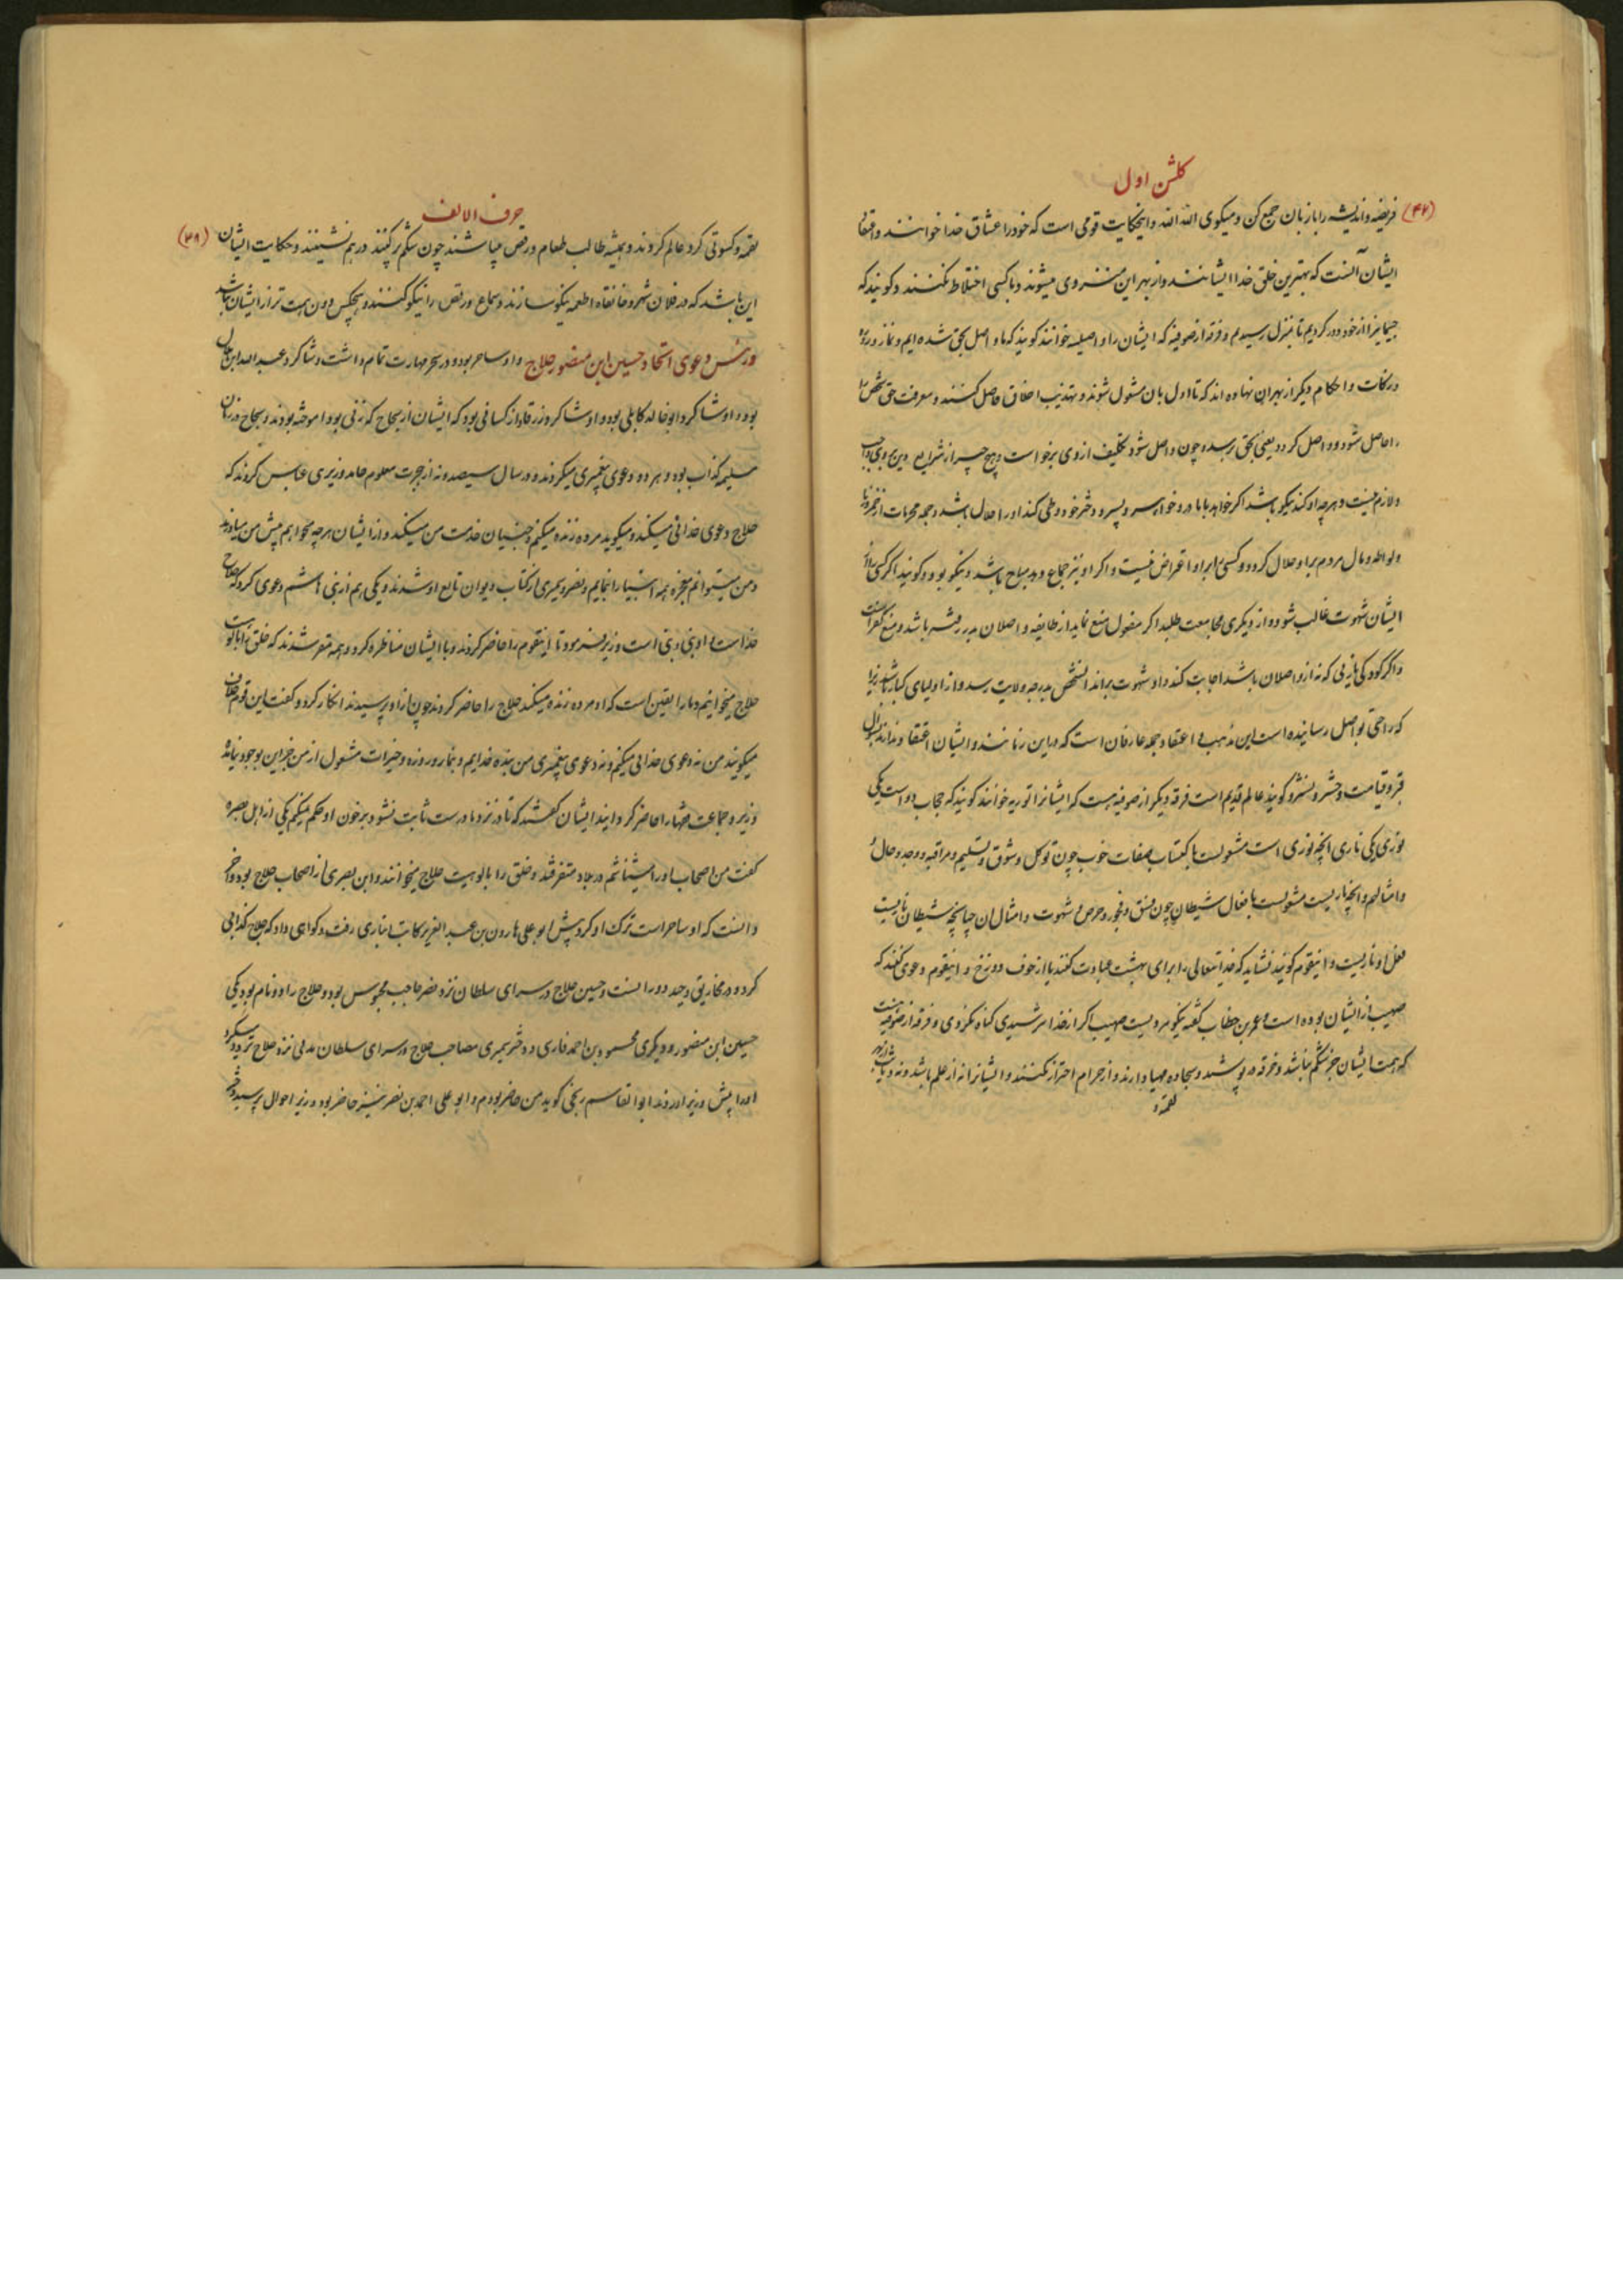 کلشن اول
(۴۷)
فریضه و اندیشه را با زبان جمع کن و میکوی الله الله و اینحکایت قومی است که خود را عشاق خدا خوانند و اعتقاد
ایشان آنست که بهترین خلق خدا ایشانند و از بهر این منزوی میشوند و با کسی اختلاط نکنند و کویند که
حجابها از خود دور کردیم تا بمنزل رسیدیم و فرقه از صوفیه که ایشان را واصلیه خوانند کویند که ما واصل بحق شده ایم و نماز و روزه
و زکات و احکام دیکر از بهر آن نهاده اند که تا اول بان مشغول شوند و تهذیب اخلاق حاصل کنند و معرفت حق شخص را
حاصل شود و واصل کردد یعنی بحق رسد و چون واصل شود تکلیف از وی برخواست و هیچ چیز از شرایع دین بر وی واجب
و لازم نیست و هرچه او کند نیکو باشد اکر خواهد با مادر و خواهر و پسر و دختر خود وطی کند او را حلال باشد و جمله محرمات از خمر و زنا
و لواطه و مال مردم بر او حلال کردد و کسی را بر او اعتراض نیست و اکر او نیز جماع دهد مباح باشد و نیکو بود و کویند اکر کسی را از
ایشان شهوت غالب شود و از دیکری مجامعت طلبد اکر مفعول منع نماید از طایفه واصلان بدر رفته باشد و منع کفر است
و اکر کودکی یا زنی که نه از واصلان باشد اجابت کند و او شهوت براند انشخص بدرجه ولایت رسد و از اولیای کبار باشد زیرا
که راحتی بواصل رسانیده است این مذهب و اعتقاد جمله عارفان است که در این زمانند و ایشان اعتقاد ندارند بسوال
قبر و قیامت و حشر و نشر و کویند عالم قدیم است فرقه دیکر از صوفیه هست که ایشانرا نوریه خوانند کویند که حجاب دو است یکی
نوری یکی ناری انچه نوری است مشغولست باکتساب صفات خوب چون توکل و شوق و تسلیم و مراقبه و وجد و حال
و امثالهم و انچه ناریست مشغولست بافعال شیطان چون فسق و فجور و حرص و شهوت و امثال ان چنانچه شیطان ناریست
فعل او ناریست و اینقوم کویند نشاید که خدایتعالی را برای بهشت عبادت کنند یا از خوف دوزخ و اینقوم دعوی کنند که
صهیب از ایشان بوده است و عمر بن خطاب کفته نیکو مردیست صهیب اکر از خدا نترسیدی کناه نکردی و فرقه از صوفیه هست
که همت ایشان جز شکم نباشد و خرقه در پوشند و سجاده مهیا دارند و از حرام احتراز نکنند و ایشانرا نه از علم باشد و نه دیانت از بهر
لقمه و
حرف الالف
(۴۸)
لقمه و کسوتی کرد عالم کردند و همیشه طالب طعام و رقص میباشند چون شکم پر کنند در هم نشینند و حکایت ایشان
این باشد که در فلان شهر و خانقاه اطعمه نیکو سازند و سماع و رقص را نیکو کنند و هیچکس دون همت تر از ایشان نباشد
ورنش دعوی اتحاد حسین ابن منصور حلاج و او ساحر بود و در سحر مهارت تمام داشت و شاکرد عبدالله ابن هلال
بود و او شاکرد ابوخالد کابلی بود و او شاکرد زرقا و از کسانی بود که ایشان از سجاح که زنی بود اموخته بودند و سجاح در زمان
مسیلمه کذاب بود و هر دو دعوی پیغمبری میکردند و در سال سیصد و نه از هجرت معلوم حامد وزیر بنی عباس کردند که
حلاج دعوی خدائی میکند و میکوید مرده زنده میکنم و جنیان خدمت من میکنند و از ایشان هرچه میخواهم پیش من میاورند
و من میتوانم معجزه همه انبیا را بنمایم و نصر و سمری از کتاب دیوان تابع او شدند و یکی هم از بنی هاشم دعوی کرد که حلاج
خداست و او نبی وی است وزیر فرمود تا اینقوم را حاضر کردند و با ایشان مناظره کرد و همه مقر شدند که خلق را بالوهیت
حلاج میخوانیم و ما را یقین است که او مرده زنده میکند حلاج را حاضر کردند چون از او پرسیدند انکار کرد و کفت این قوم خلاف
میکویند من نه دعوی خدائی میکنم و نه دعوی پیغمبری من بنده خدایم و بنماز و روزه و خیرات مشغول از من جز این بوجود نیامد
وزیر و جماعت فقها را حاضر کردانید ایشان کفتند که تا در نزد ما درست ثابت نشود بر خون او حکم نمیکنیم یکی از اهل بصره
کفت من اصحاب او را میشناسم در بلاد متفرقند و خلق را بالوهیت حلاج میخوانند و ابن بصری از اصحاب حلاج بود و اخر
دانست که او ساحر است ترک او کرد پیش ابو علی هارون بن عبدالعزیز کاتب انباری رفت و کواهی داد که حلاج کذابی
کرد و در مخاریق و حیله دورا نست و حسین حلاج در سرای سلطان نزد نصر حاجب محبوس بود و حلاج را دو نام بود یکی
حسین ابن منصور و دیکری محمد بن احمد فارسی و دختر سمری مصاحب حلاج در سرای سلطان مدتی نزد حلاج تردد میکرد
او را پیش وزیر اوردند ابوالقاسم زنجی کوید من حاضر بودم و ابو علی احمد بن نصر نیز حاضر بود وزیر احوال پرسید دختر